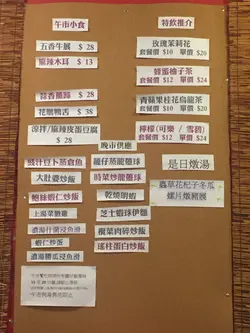 午市小食
五香牛展 $ 28
麻辣木耳 $ 13
蒜香薯蹄 $ 28
花雕鴨舌 $ 38
涼拌/麻辣皮蛋豆腐
$ 28
特飲推介
玫瑰茉莉花
套餐價 $10 單價 $20
蜂蜜柚子茶
套餐價 $12 單價 $24
青蘋果桂花烏龍茶
套餐價 $12 單價 $24
檸檬(可樂 / 雪碧)
套餐價 $12 單價 $24
晚市供應
豉汁豆卜蒸倉魚
大肚婆炒飯
鮑絲蝦仁炒飯
上湯菜膽雞
濃湯什菌浸魚滑
蝦仁炒蛋
濃湯勝瓜浸魚滑
雞仔蒸龍蝦球
時菜炒龍躉球
乾燒明蝦
芝士蝦球伊麵
欖菜肉碎炒飯
瑤柱蛋白炒飯
是日燉湯
蟲草花杞子冬瓜
螺片燉豬𦟌